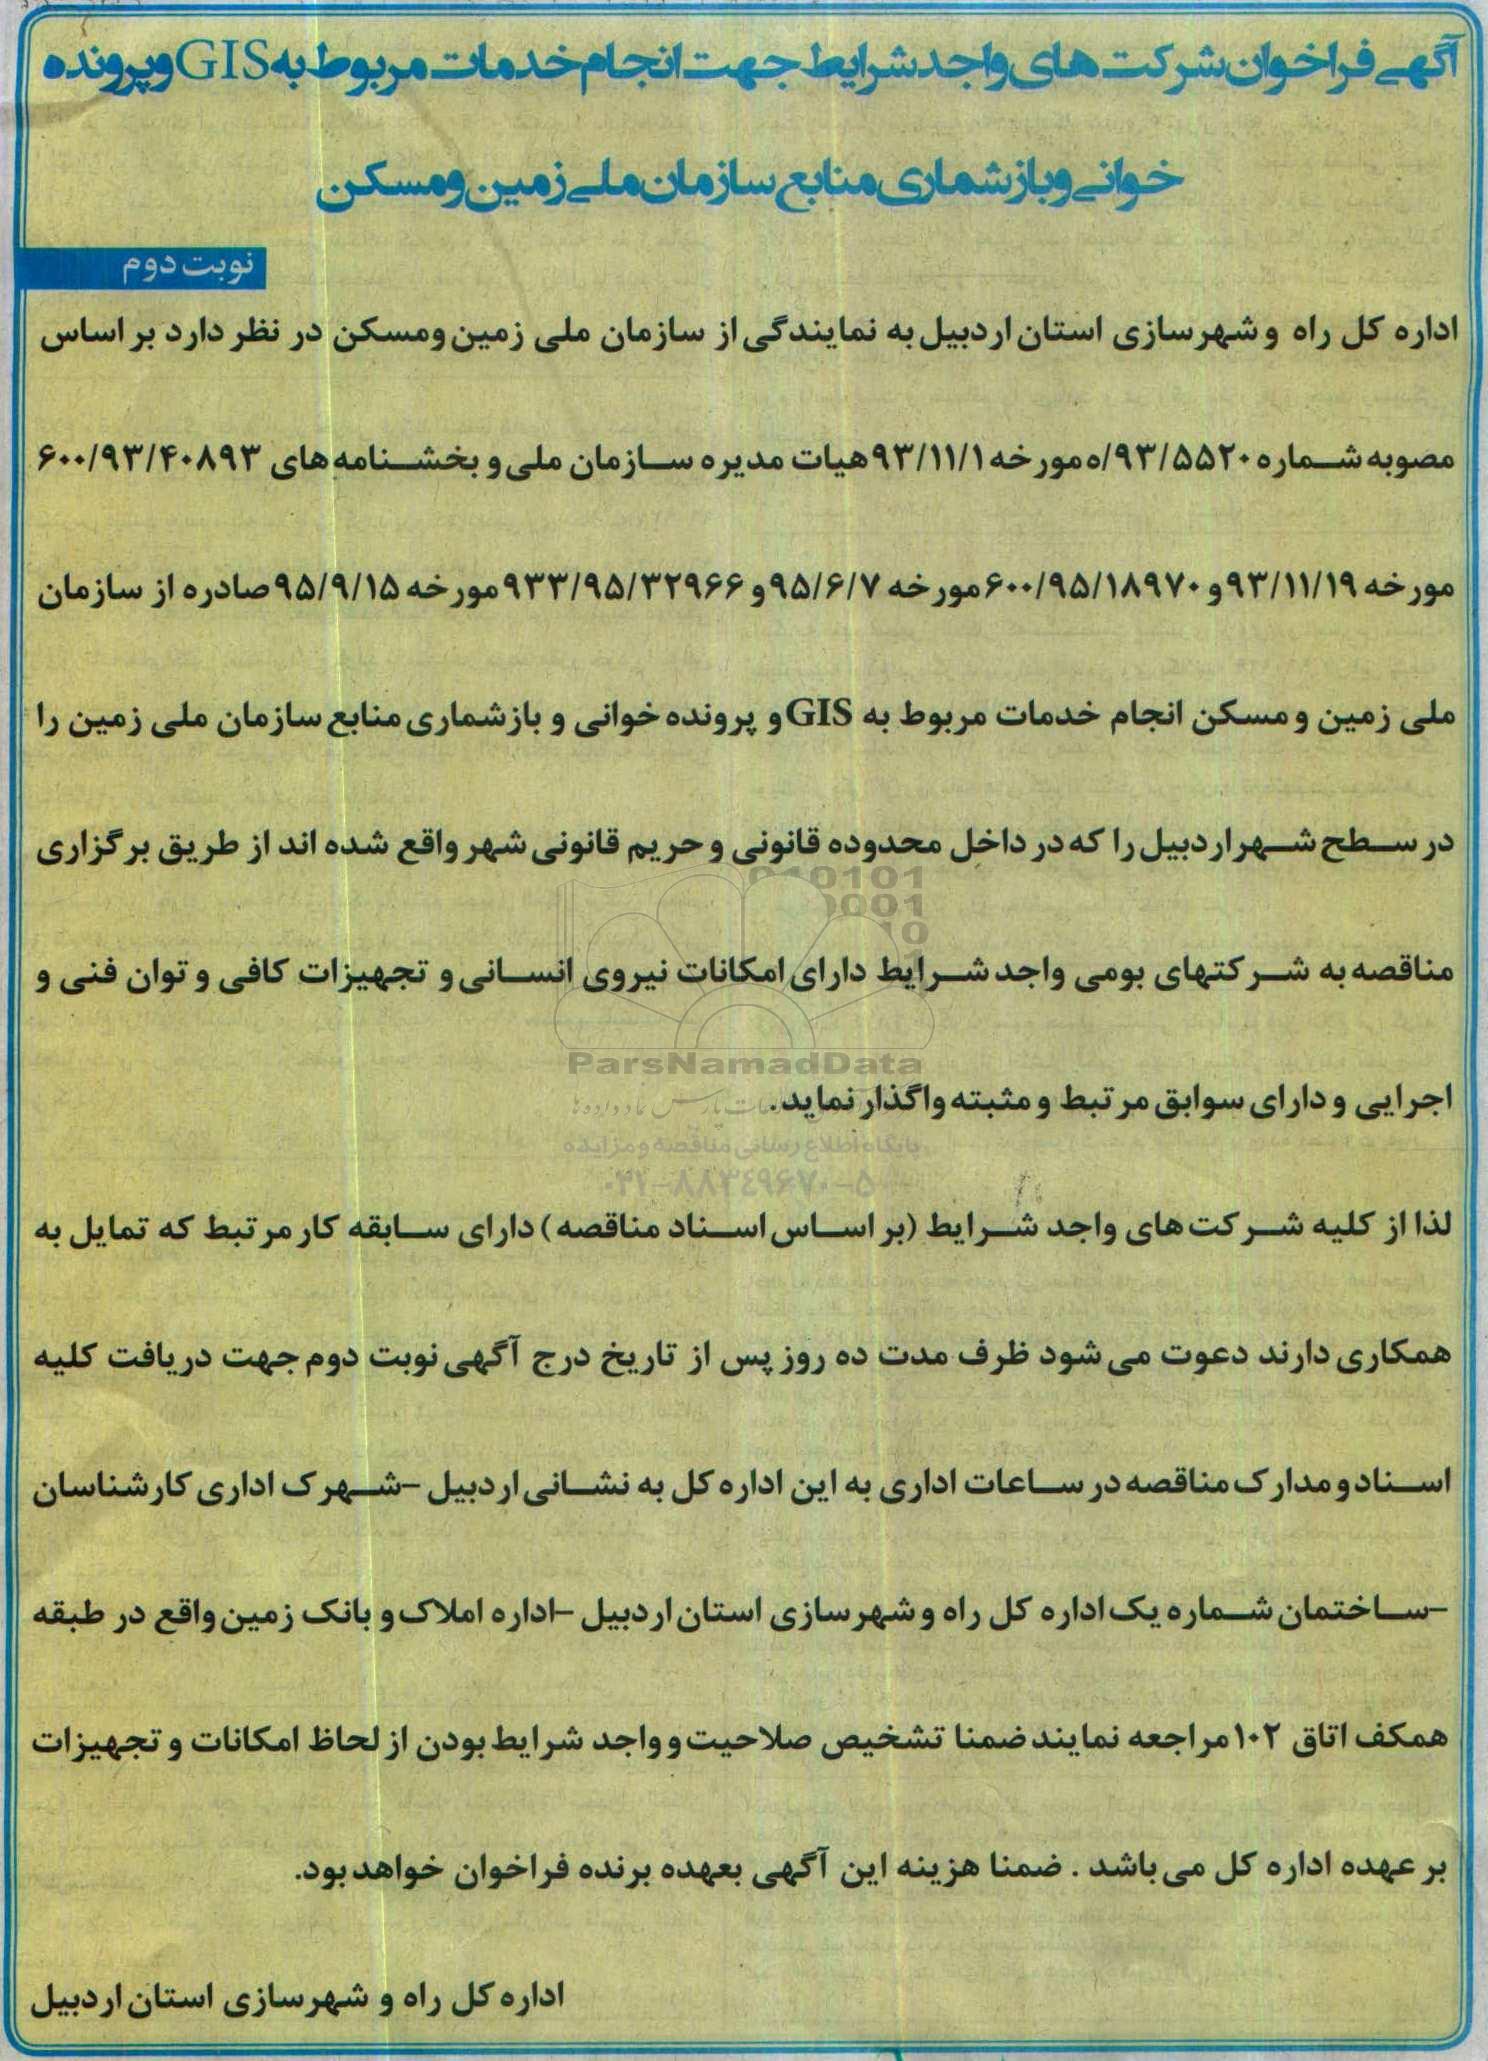 آگهی فراخوان شرکت های واجد شرایط جهت انجام خدمات مربوط به GIS و پرونده
خوانی و بازشماری منابع سازمان ملی زمین و مسکن
نوبت دوم
اداره کل راه و شهرسازی استان اردبیل به نمایندگی از سازمان ملی زمین ومسکن در نظر دارد بر اساس
مصوبه شماره ۹۳/۵۵۲۰/ه مورخه ۹۳/۱۱/۱ هیات مدیره سازمان ملی و بخشنامه های ۶۰۰/۹۳/۴۰۸۹۳
مورخه ۹۳/۱۱/۱۹ و ۶۰۰/۹۵/۱۸۹۷۰ مورخه ۹۵/۶/۷ و ۹۳۳/۹۵/۳۲۹۶۶ مورخه ۹۵/۹/۱۵ صادره از سازمان
ملی زمین و مسکن انجام خدمات مربوط به GIS و پرونده خوانی و بازشماری منابع سازمان ملی زمین را
در سطح شهر اردبیل را که در داخل محدوده قانونی و حریم قانونی شهر واقع شده اند از طریق برگزاری
010101
0001
10
مناقصه به شرکتهای بومی واجد شرایط دارای امکانات نیروی انسانی و تجهیزات کافی و توان فنی و
ParsNamadData
اجرایی و دارای سوابق مرتبط و مثبته واگذار نماید.
پایگاه اطلاع رسانی مناقصه و مزایده
۰۲۱-۸۸۳۴۹۶۷۰-۵
لذا از کلیه شرکت های واجد شرایط (بر اساس اسناد مناقصه) دارای سابقه کار مرتبط که تمایل به
همکاری دارند دعوت می شود ظرف مدت ده روز پس از تاریخ درج آگهی نوبت دوم جهت دریافت کلیه
اسناد و مدارک مناقصه در ساعات اداری به این اداره کل به نشانی اردبیل –شهرک اداری کارشناسان
–ساختمان شماره یک اداره کل راه و شهرسازی استان اردبیل –اداره املاک و بانک زمین واقع در طبقه
همکف اتاق ۱۰۲ مراجعه نمایند ضمنا تشخیص صلاحیت و واجد شرایط بودن از لحاظ امکانات و تجهیزات
بر عهده اداره کل می باشد . ضمنا هزینه این آگهی بعهده برنده فراخوان خواهد بود.
اداره کل راه و شهرسازی استان اردبیل